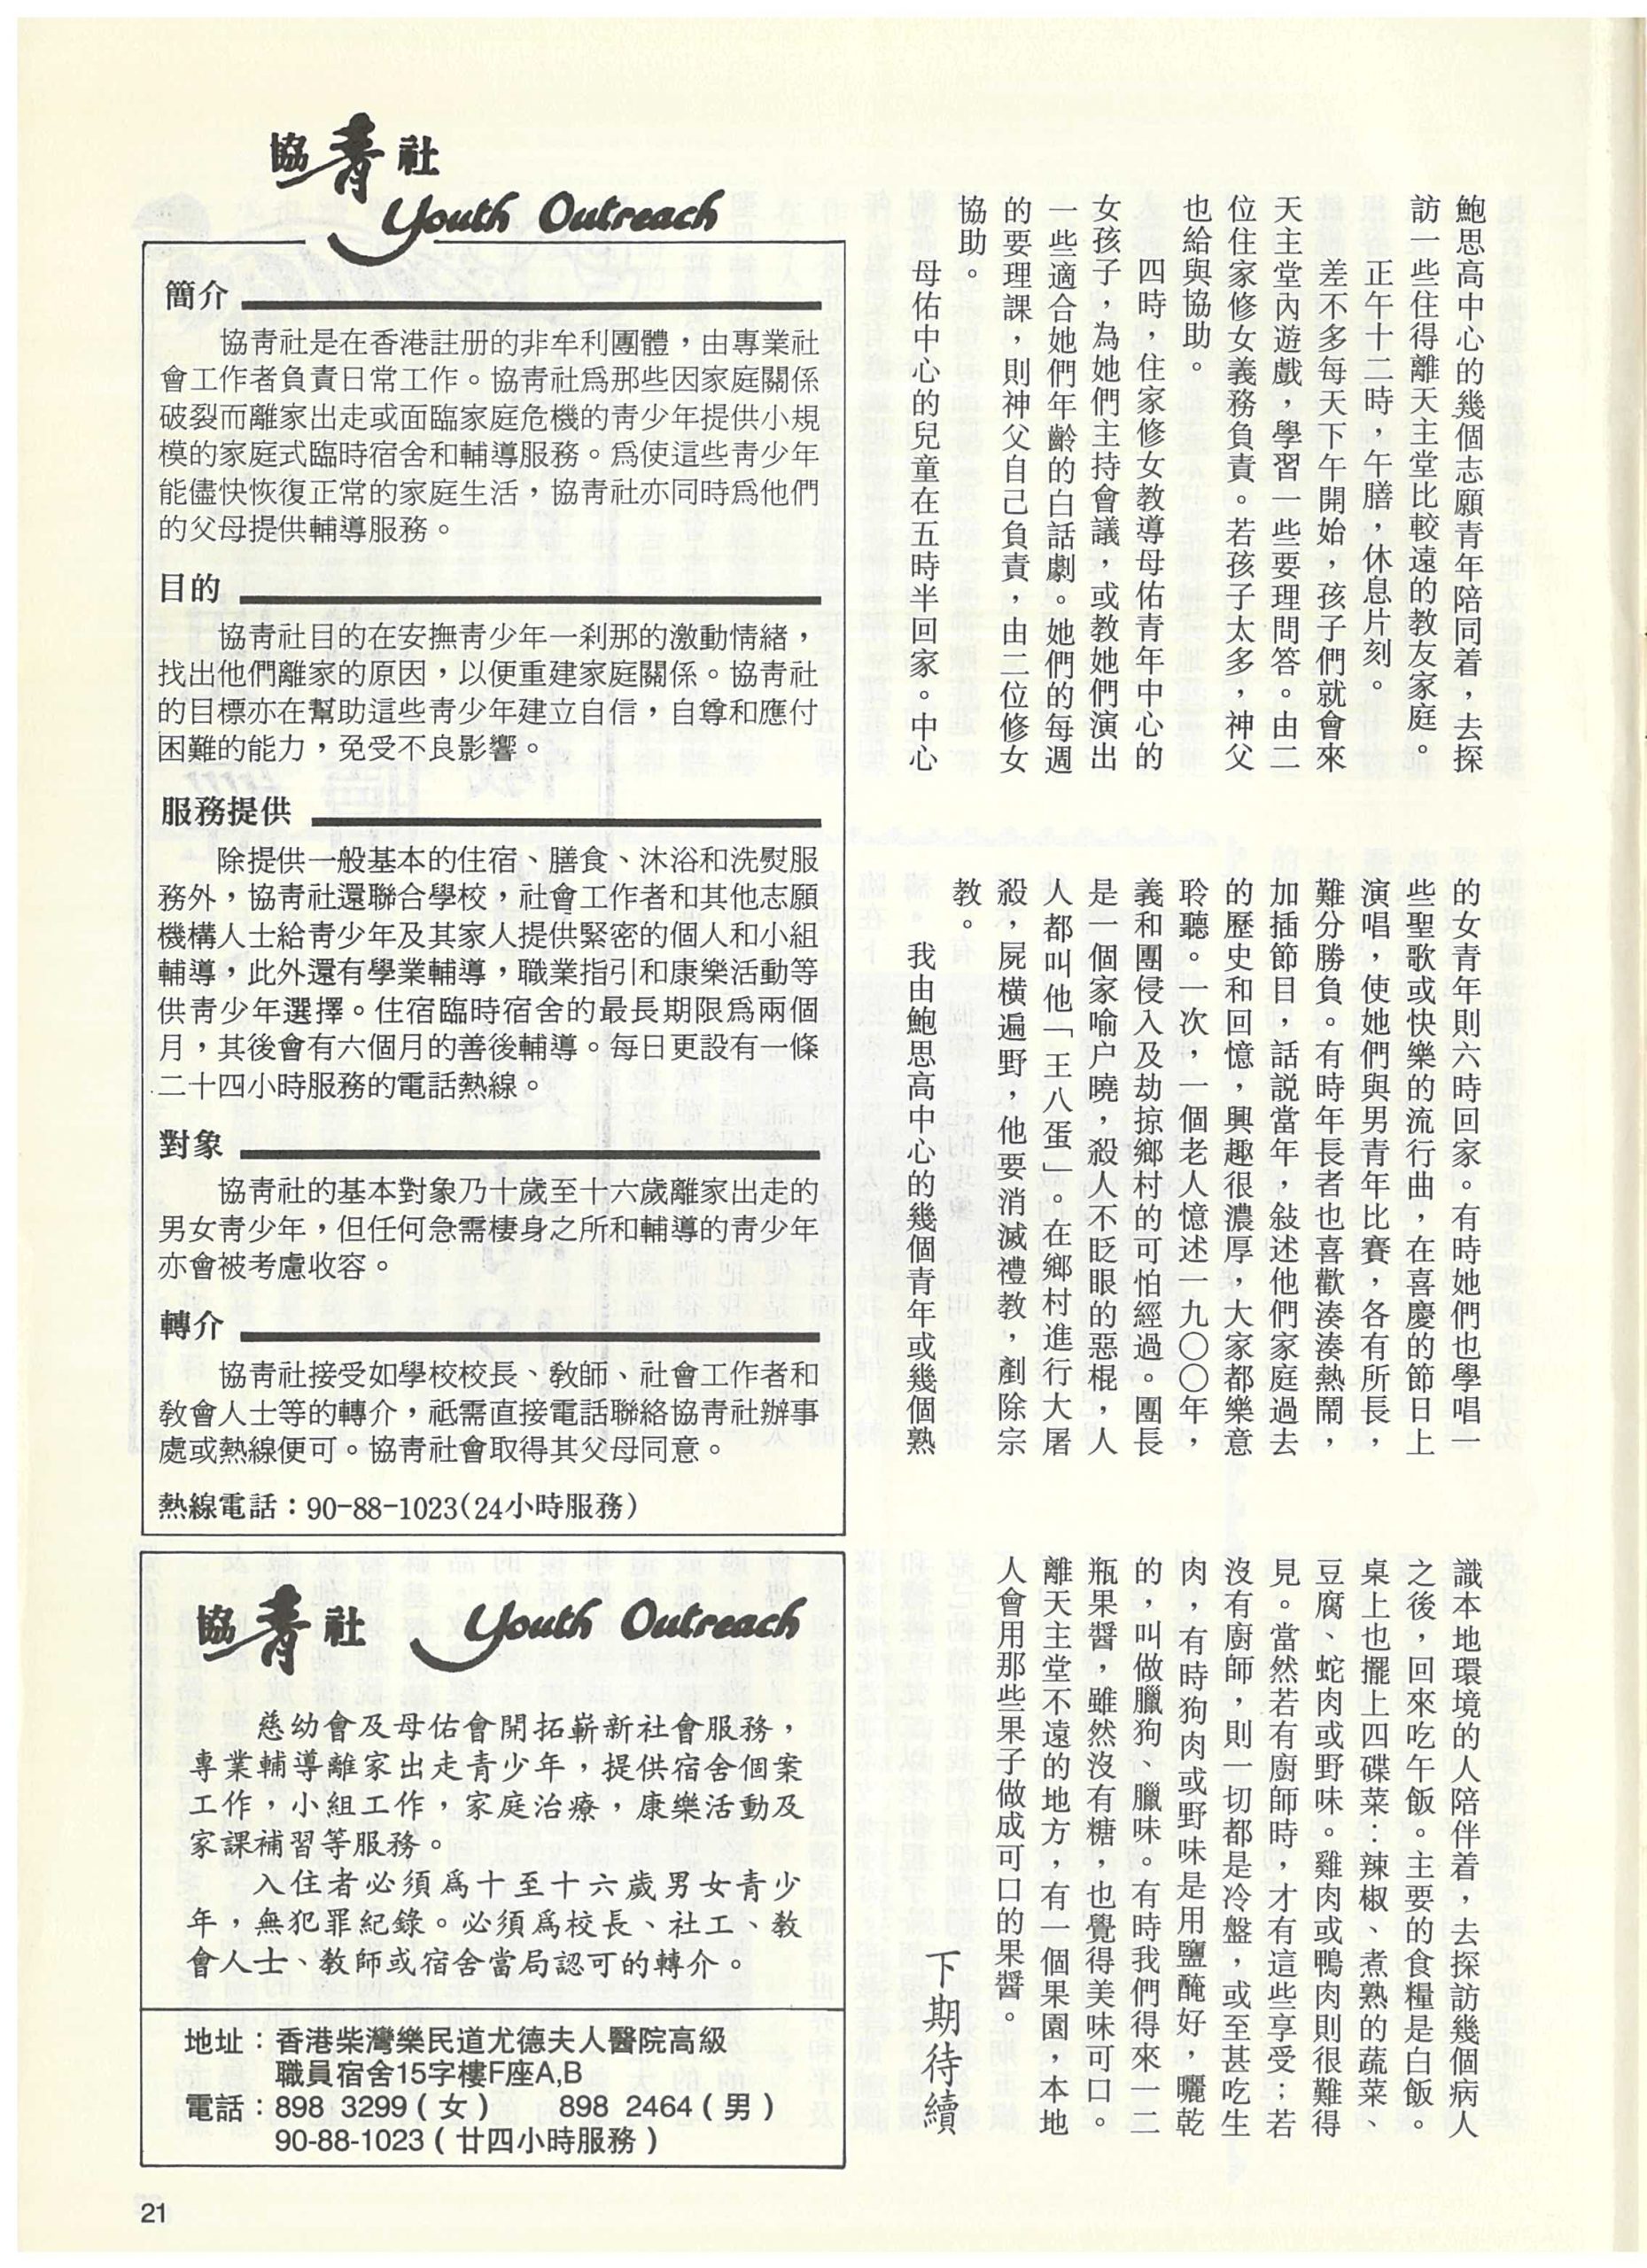 鮑思高中心的幾個志願青年陪同着，去探
訪一些住得離天主堂比較遠的教友家庭。
正午十二時，午膳，休息片刻。
差不多每天下午開始，孩子們就會來
天主堂內遊戲，學習一些要理問答。由二
位住家修女義務負責。若孩子太多，神父
也給與協助。
四時，住家修女教導母佑青年中心的
女孩子，為她們主持會議，或教她們演出
一些適合她們年齡的白話劇。她們的每週
的要理課，則神父自己負責，由二位修女
協助。
母佑中心的兒童在五時半回家。中心
的女青年則六時回家。有時她們也學唱一
些聖歌或快樂的流行曲，在喜慶的節日上
演唱，使她們與男青年比賽，各有所長，
難分勝負。有時年長者也喜歡湊湊熱鬧，
加插節目，話說當年，敍述他們家庭過去
的歷史和回憶，興趣很濃厚，大家都樂意
聆聽。一次，一個老人憶述一九〇〇年，
義和團侵入及劫掠鄉村的可怕經過。團長
是一個家喻户曉，殺人不眨眼的惡棍，人
人都叫他「王八蛋」。在鄉村進行大屠
殺，屍橫遍野，他要消滅禮教，剷除宗
教。
我由鮑思高中心的幾個青年或幾個熟
識本地環境的人陪伴着，去探訪幾個病人
之後，回來吃午飯。主要的食糧是白飯。
桌上也擺上四碟菜：辣椒、煮熟的蔬菜、
豆腐、蛇肉或野味。雞肉或鴨肉則很難得
見。當然若有廚師時，才有這些享受；若
沒有廚師，則一切都是冷盤，或至甚吃生
肉，有時狗肉或野味是用鹽醃好，曬乾
的，叫做臘狗、臘味。有時我們得來一二
瓶果醬，雖然沒有糖，也覺得美味可口。
離天主堂不遠的地方，有一個果園，本地
人會用那些果子做成可口的果醬。
下期待續
協青社
Youth Outreach
簡介
協靑社是在香港註册的非牟利團體，由專業社
會工作者負責日常工作。協靑社爲那些因家庭關係
破裂而離家出走或面臨家庭危機的靑少年提供小規
模的家庭式臨時宿舍和輔導服務。爲使這些靑少年
能儘快恢復正常的家庭生活，協靑社亦同時爲他們
的父母提供輔導服務。
目的
協靑社目的在安撫靑少年一刹那的激動情緒，
找出他們離家的原因，以便重建家庭關係。協靑社
的目標亦在幫助這些靑少年建立自信，自尊和應付
困難的能力，免受不良影響。
服務提供
除提供一般基本的住宿、膳食、沐浴和洗熨服
務外，協靑社還聯合學校，社會工作者和其他志願
機構人士給靑少年及其家人提供緊密的個人和小組
輔導，此外還有學業輔導，職業指引和康樂活動等
供靑少年選擇。住宿臨時宿舍的最長期限爲兩個
月，其後會有六個月的善後輔導。每日更設有一條
二十四小時服務的電話熱線。
對象
協靑社的基本對象乃十歲至十六歲離家出走的
男女靑少年，但任何急需棲身之所和輔導的靑少年
亦會被考慮收容。
轉介
協靑社接受如學校校長、敎師、社會工作者和
敎會人士等的轉介，祇需直接電話聯絡協靑社辦事
處或熱線便可。協靑社會取得其父母同意。
熱線電話：90-88-1023(24小時服務)
協青社 Youth Outreach
慈幼會及母佑會開拓嶄新社會服務，
專業輔導離家出走青少年，提供宿舍個案
工作，小組工作，家庭治療，康樂活動及
家課補習等服務。
入住者必須爲十至十六歲男女青少
年，無犯罪紀錄。必須爲校長、社工、教
會人士、教師或宿舍當局認可的轉介。
地址：香港柴灣樂民道尤德夫人醫院高級
職員宿舍15字樓F座A,B
電話：898 3299（女） 898 2464（男）
90-88-1023（廿四小時服務）
21